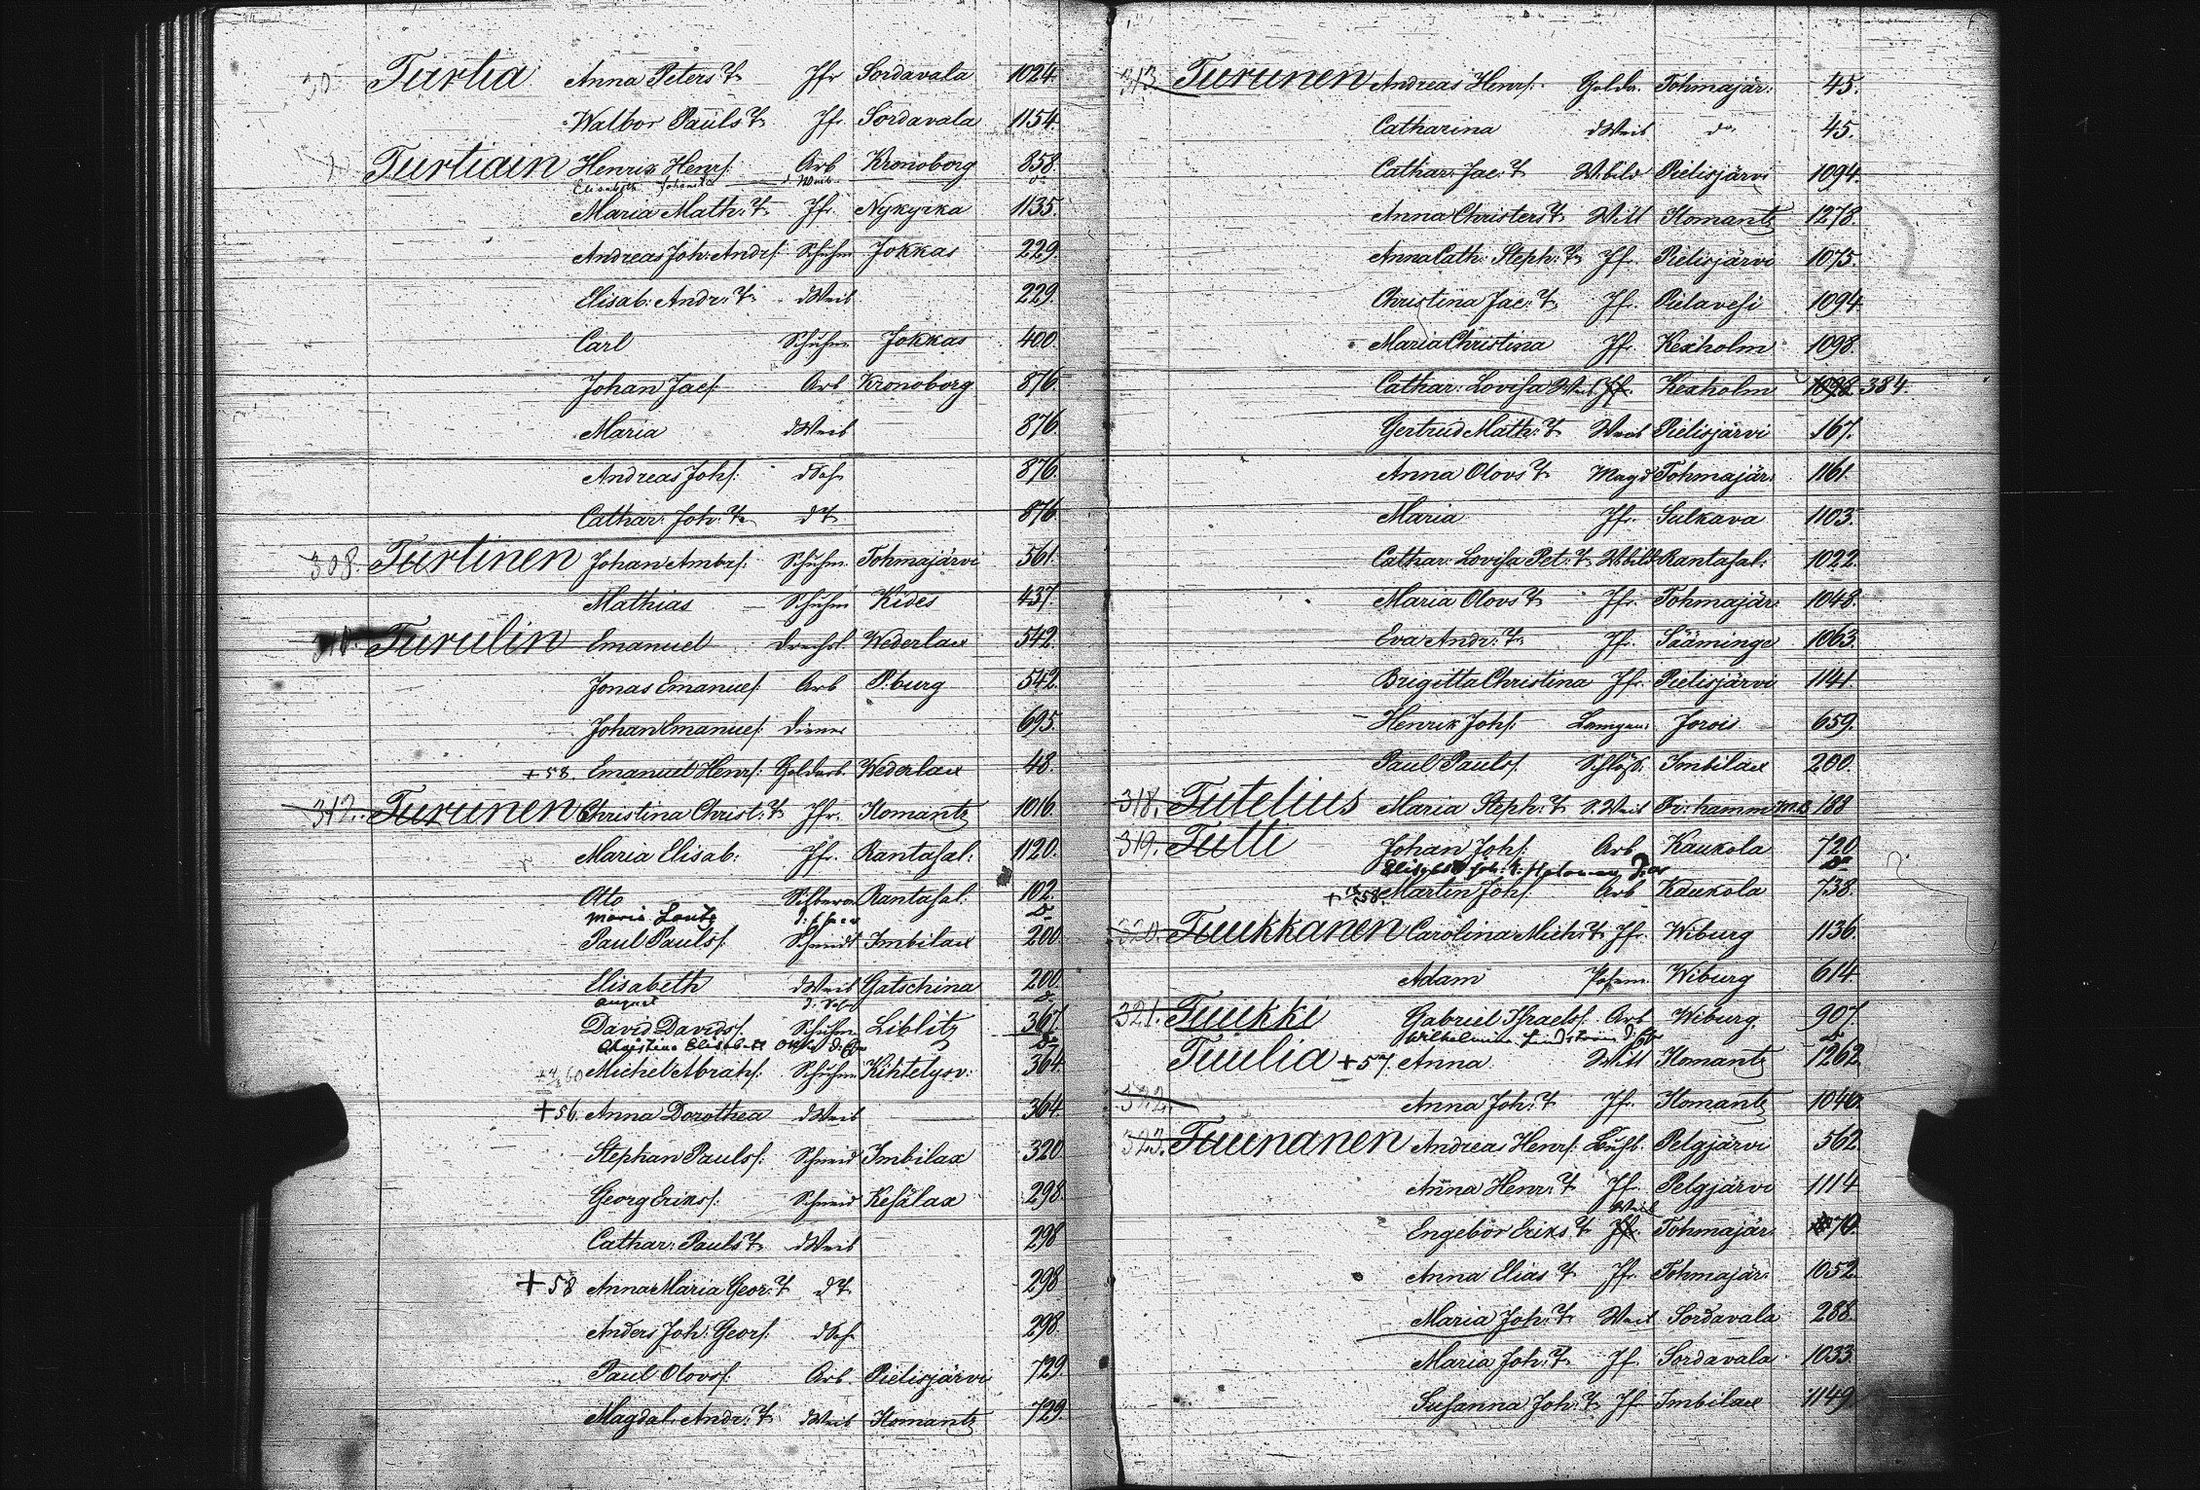 Turtia Anna Peters T. Jfr Sordavala 1024.
Walbor Pauls T. Jfr. Sordavala 1154.
Turtiain Henrik Henrs: Arb Kronoborg 858.
Elisabeth d Weib do
Maria Math: T. Jfr. Nykyrka 1135.
Andreas Joh: Andrs: Schuhm Jokkas 229.
Elisab: Andr: T. dWeib 229.
Carl Schuhm Jokkas 400.
Johan Jacs: Arb Kronoborg 876.
Maria dWeib 876.
Andreas Johs: dSohn 876.
Cathar: Joh: T. dT. 876.
308. Turtinen Johan Ambrs: Schuhm. Tohmajärvi 561.
Mathias Schuhm Kides 437.
310. Turulin Emanuel Drechsl. Wederlax 542.
Jonas Emanuels: Arb P.burg 542.
Johan Emanuels: Diener 695.
+58. Emanuel Henrs: Goldarb. Wederlax 48.
312. Turunen Christina Christ: T. Jfr. Ilomantz 1016.
Maria Elisab: Jfr. Rantasal: 1120.
Oto Silberar Rantasal: 102.
Maria Lautz do
Paul Pauls: Schmidt Imbilax 200
Elisabeth dWeib Gatschina 200.
August d. Sohn do
David Davids: Schuhm Liblitz 367.
Christina Elisabeth do
60 Michel Abrahs: Schuhm Kihtelysv: 364
+56. Anna Dorothea dWeib 364
Stephan Pauls: Schneid Imbilax 320
Georg Eriks: Schneid Kesälax 298
Cathar: Pauls T. dWeib 298
+58 Anna Maria Geor: T. dT. 298
Anders Joh: Geors: dSohn 298
Paul Olovs: Arb. Pielisjärvi 729
Magdal: Andr: T. dWeib Ilomantz 729.
313. Turunen Andreas Henrs: Golda. Tohmajär: 45.
Catharina dWeib do. 45.
Cathar: Jac: T. W.bild Pielisjärvi 1094.
Anna Christers T. Witt Ilomantz 1278.
Anna Cath: Steph: T. Jfr. Pielisjärvi 1075.
Christina Jac: T. Jfr. Pielavesi 1094.
Maria Christina Jfr. Kexholm 1098.
Cathar: Lovisa Weib Jfr. Kexholm 1098. 384.
Gertrud Math: T. Weib Pielisjärvi 167.
Anna Olovs T. Magd Tohmajär: 1161.
Maria Jfr. Sulkava 1103.
Cathar: Lovisa Pet: T. W.bild Rantasal: 1022.
Maria Olovs T. Jfr. Tohmajär: 1048.
Eva Andr: T. Jfr. Sääminge 1063.
Brigitta Christina Jfr. Pielisjärvi 1141.
Henrik Johs: Jorois 659.
Paul Pauls: Schloss. Imbilax 200.
318. Tutelius Maria Steph: T. S. Weib Fr: hamm 188
319. Tutti Johan Johs: Arb. Kaukola 720
do
+58. Martin Johs: Arb Kaukola 738.
320. Tuukkanen Carolina Mich: T. Jfr. Wiburg 1136.
Adam Wiburg 614.
321. Tuukki Gabriel Israels: Arb Wiburg. 907.
Wilhelmina Lindström do
Tuulia +57. Anna Witt Ilomantz 1262.
322. Anna Joh: T. Jfr. Ilomantz 1040.
323. Tuunanen Andreas Henrs: Pelgjärvi 562.
Anna Henr: T. Jfr. Pelgjärvi 1114
Weib
Engebor Eriks T. Jfr. Tohmajär: 70.
Anna Elias T. Jfr. Tohmajär: 1052.
Maria Joh: T. Weib Sordavala 288.
Maria Joh: T. Jf. Sordavala 1033.
Susanna Joh: T. Jf. Imbilax 1149.